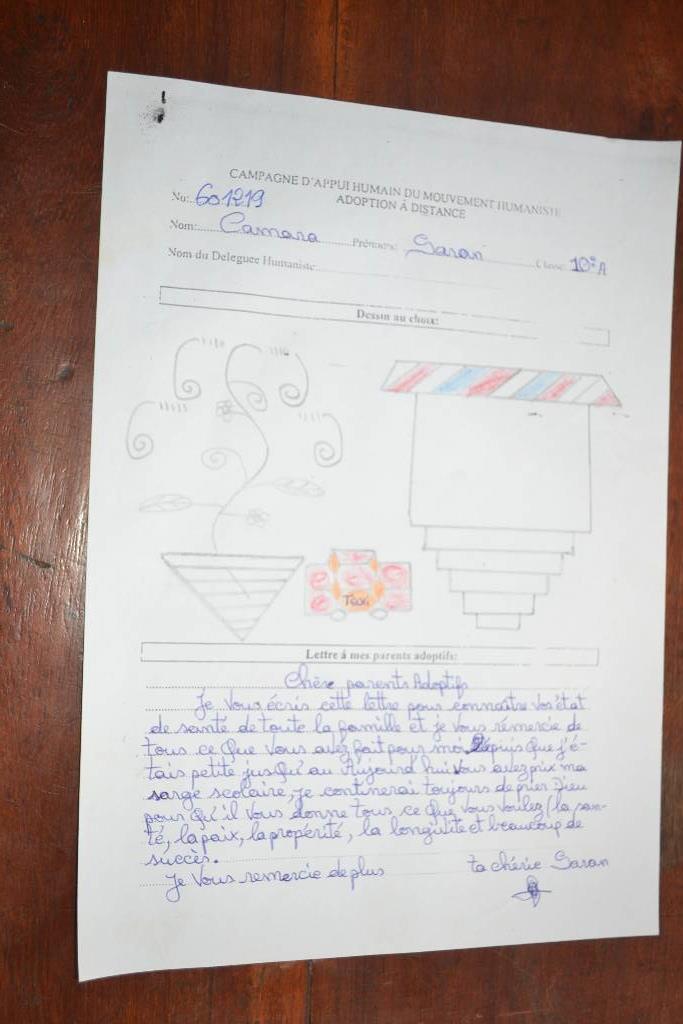 CAMPAGNE D'APPUI HUMAIN DU MOUVEMENT HUMANISTE
ADOPTION À DISTANCE
No: 601219
Nom: Camara Prénoms: Saran Classe: 10è A
Nom du Deleguee Humaniste
Dessin au choix:
Taxi
Lettre á mes parents adoptifs:
Chère parents Adoptifs
Je Vous écris cette lettre pour connaître Vos état
de santé de toute la famille et je Vous rémercie de
tous ce que Vous avez fait pour moi depuis que j'é-
tais petite jusqu'au Aujourd'hui Vous avez prix ma
sarge scolaire, je continerai toujours de prier Dieu
pour qu'il Vous donne tous ce que Vous voulez (la san-
té, la paix, la propérité, la longivite et beaucoup de
succès.
Je Vous remercie de plus ta chérie Saran